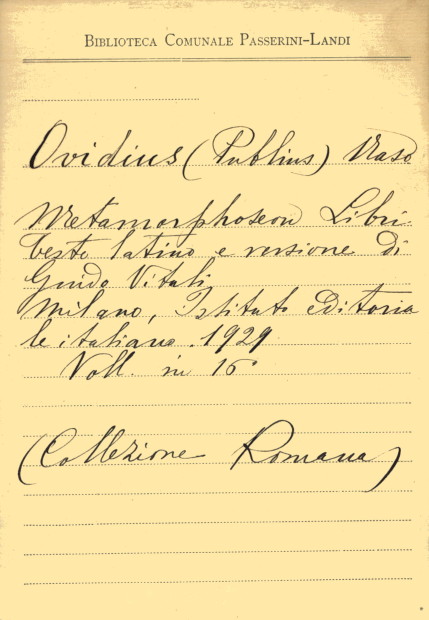 BIBLIOTECA COMUNALE PASSERINI-LANDI
Ovidius (Publius) Naso
Metamorphoseon Libri.
Testo latino e versione di
Guido Vitali
Milano, Istituto editoria
le italiano. 1929
Voll. in 16°
(Collezione Romana)